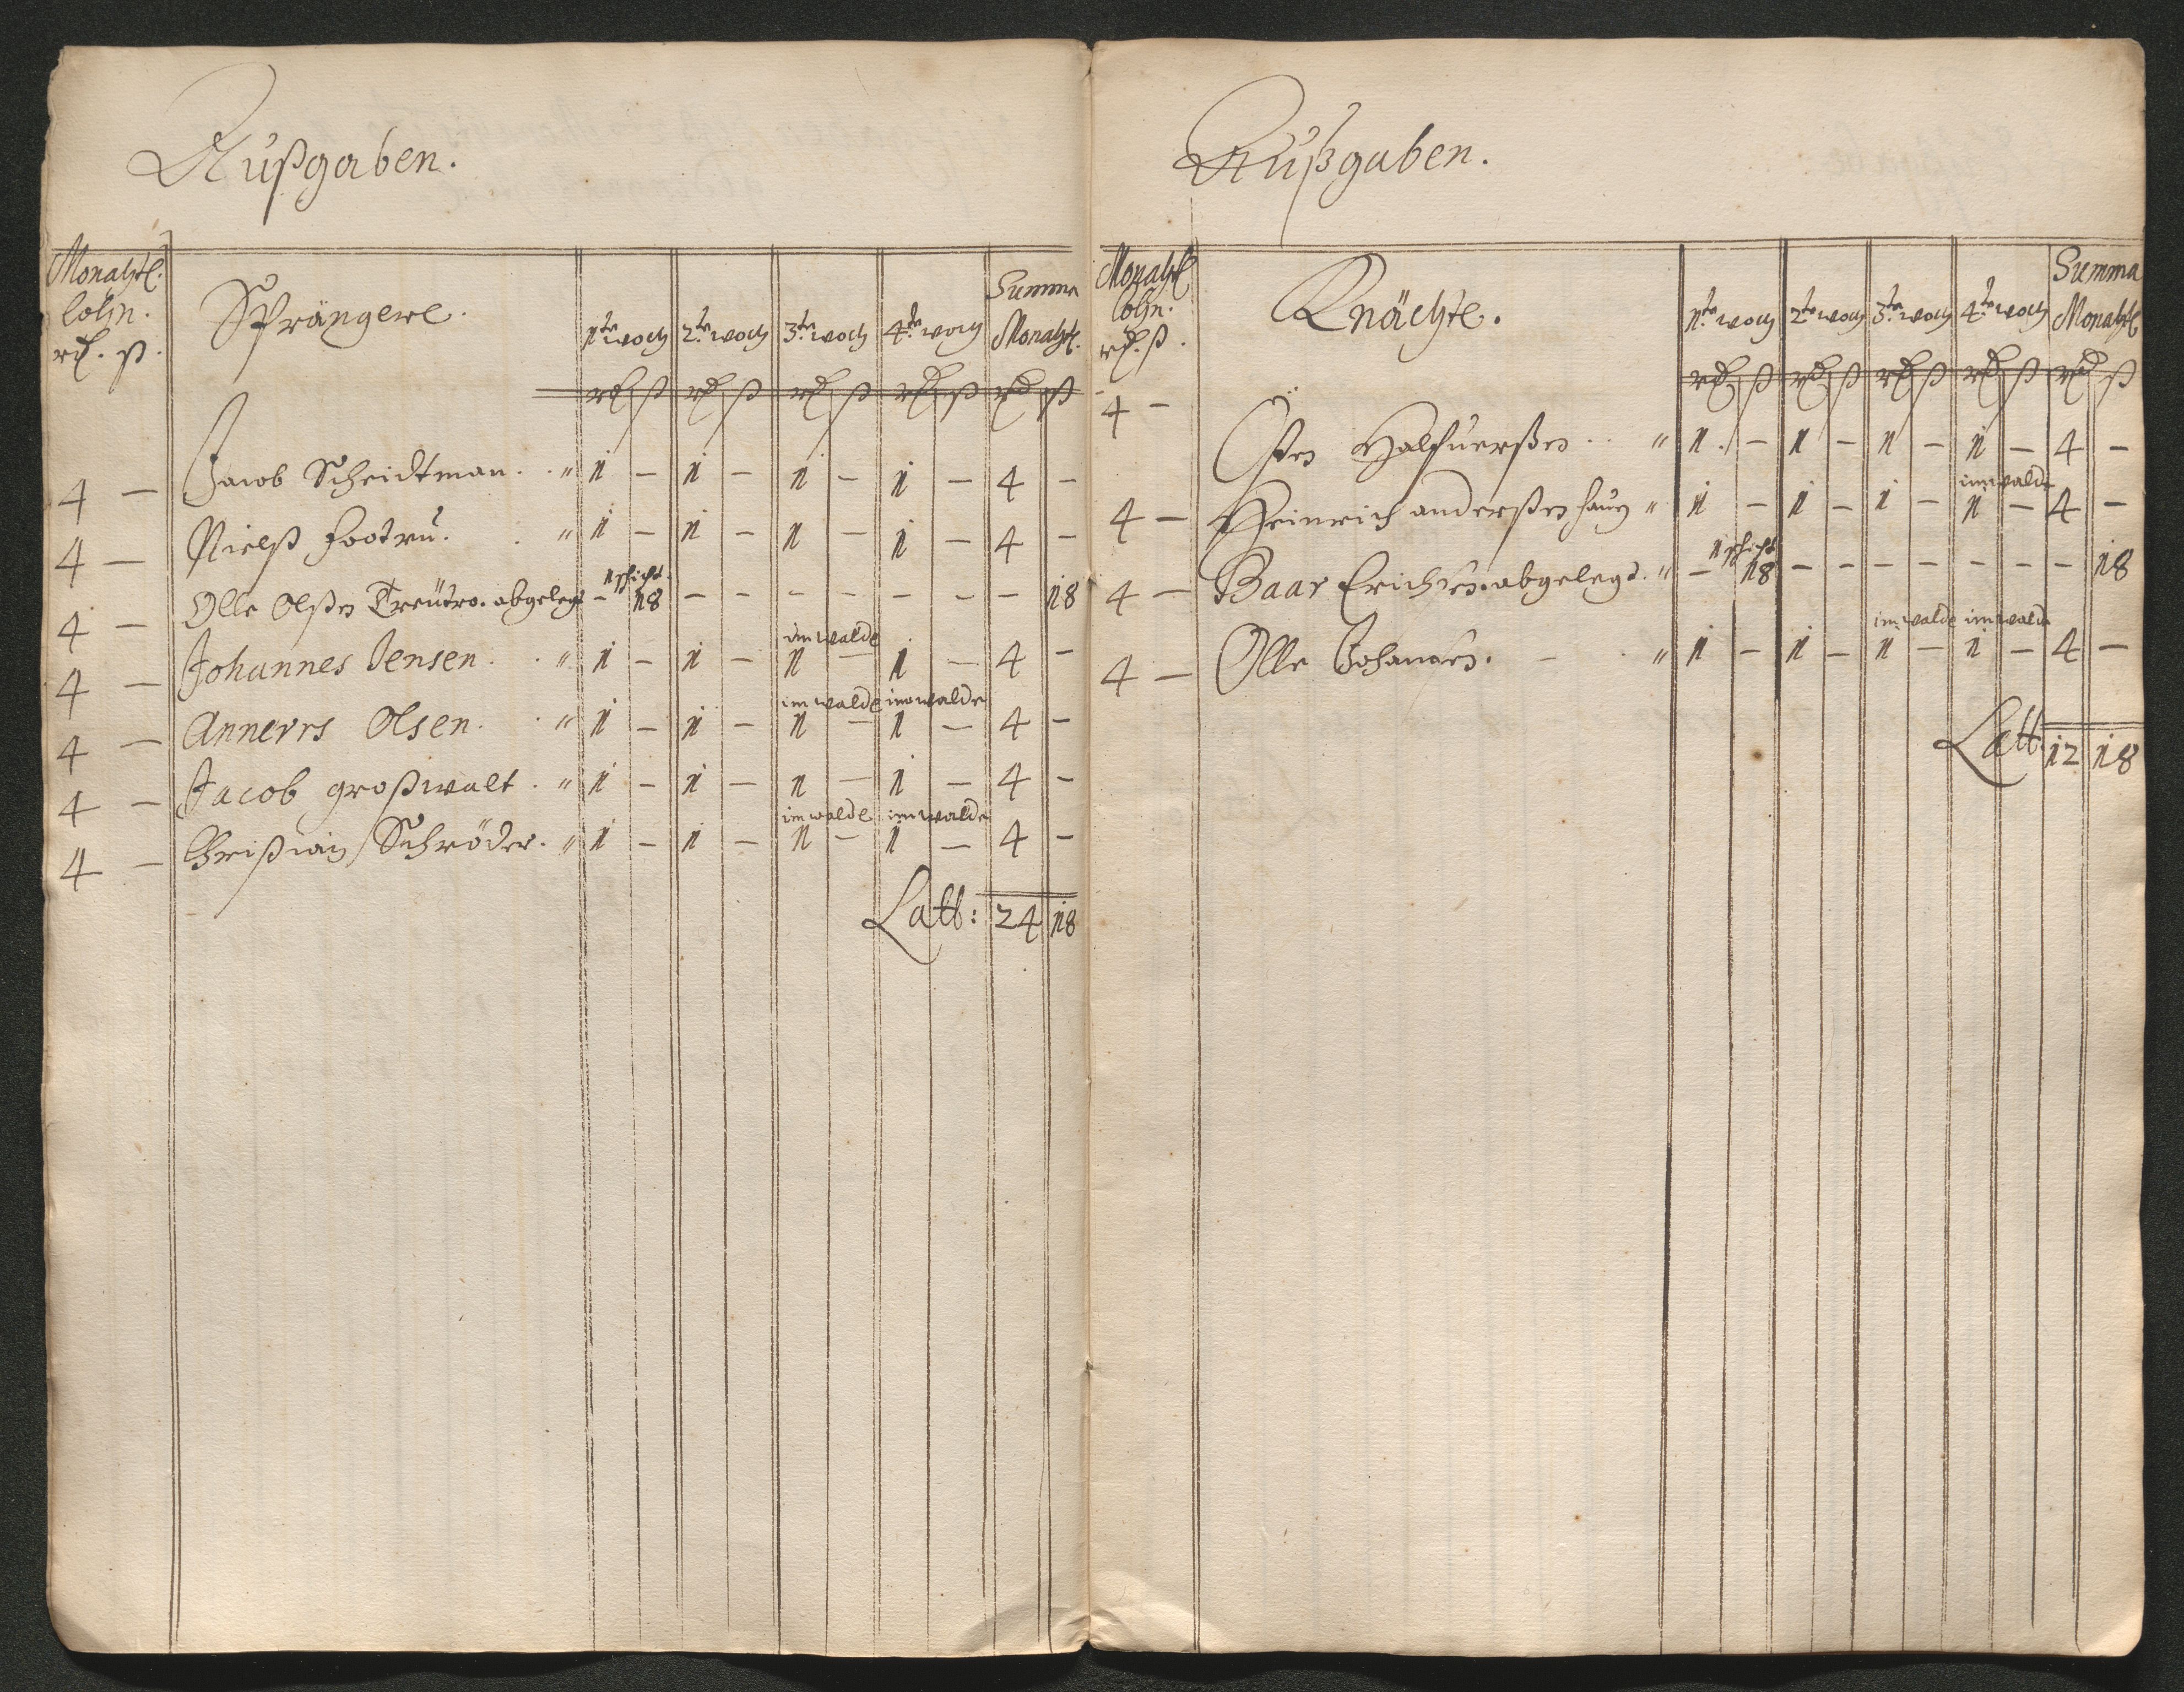 Außgaben.
Monahtl. lohn. rd. ß.
Strängere.
1te woch 2te woch 3te woch 4te woch Summa Monahtl.
rd ß rd ß rd ß rd ß rd ß
4 — Jacob Scheidtman. . " 1 — 1 — 1 — 1 — 4 —
4 — Nielß . . " 1 — 1 — 1 — 1 — 4 —
1 schicht.
4 — Olle Olßen abgelegt — 18 — — — — — — — 18
im walde
4 — Johannes Jensen. . " 1 — 1 — 1 — 1 — 4 —
im walde im walde
4 — Annerrs Olsen. . " 1 — 1 — 1 — 1 — 4 —
4 — Jacob großwalt . " 1 — 1 — 1 — 1 — 4 —
im walde im walde
4 — Christian Schröder. " 1 — 1 — 1 — 1 — 4 —
Latt: 24 18
Außgaben.
Monahtl lohn. rd. ß.
Knächte.
1te woch 2te woch 3te woch 4te woch Summa Monahtl
rd ß rd ß rd ß rd ß rd ß
4 — Halfuerßen . . " 1. — 1 — 1 — 1 — 4 —
im walde
4 — Heinrich anderßen haug " 1 — 1 — 1 — 1 — 4 —
1 schicht
4 — Baar Erichsen. abgelegt. " — 18 — — — — — — — 18
im walde im walde
4 — Olle Johansen. — . " 1 — 1 — 1 — 1 — 4 —
Latt. 12 18